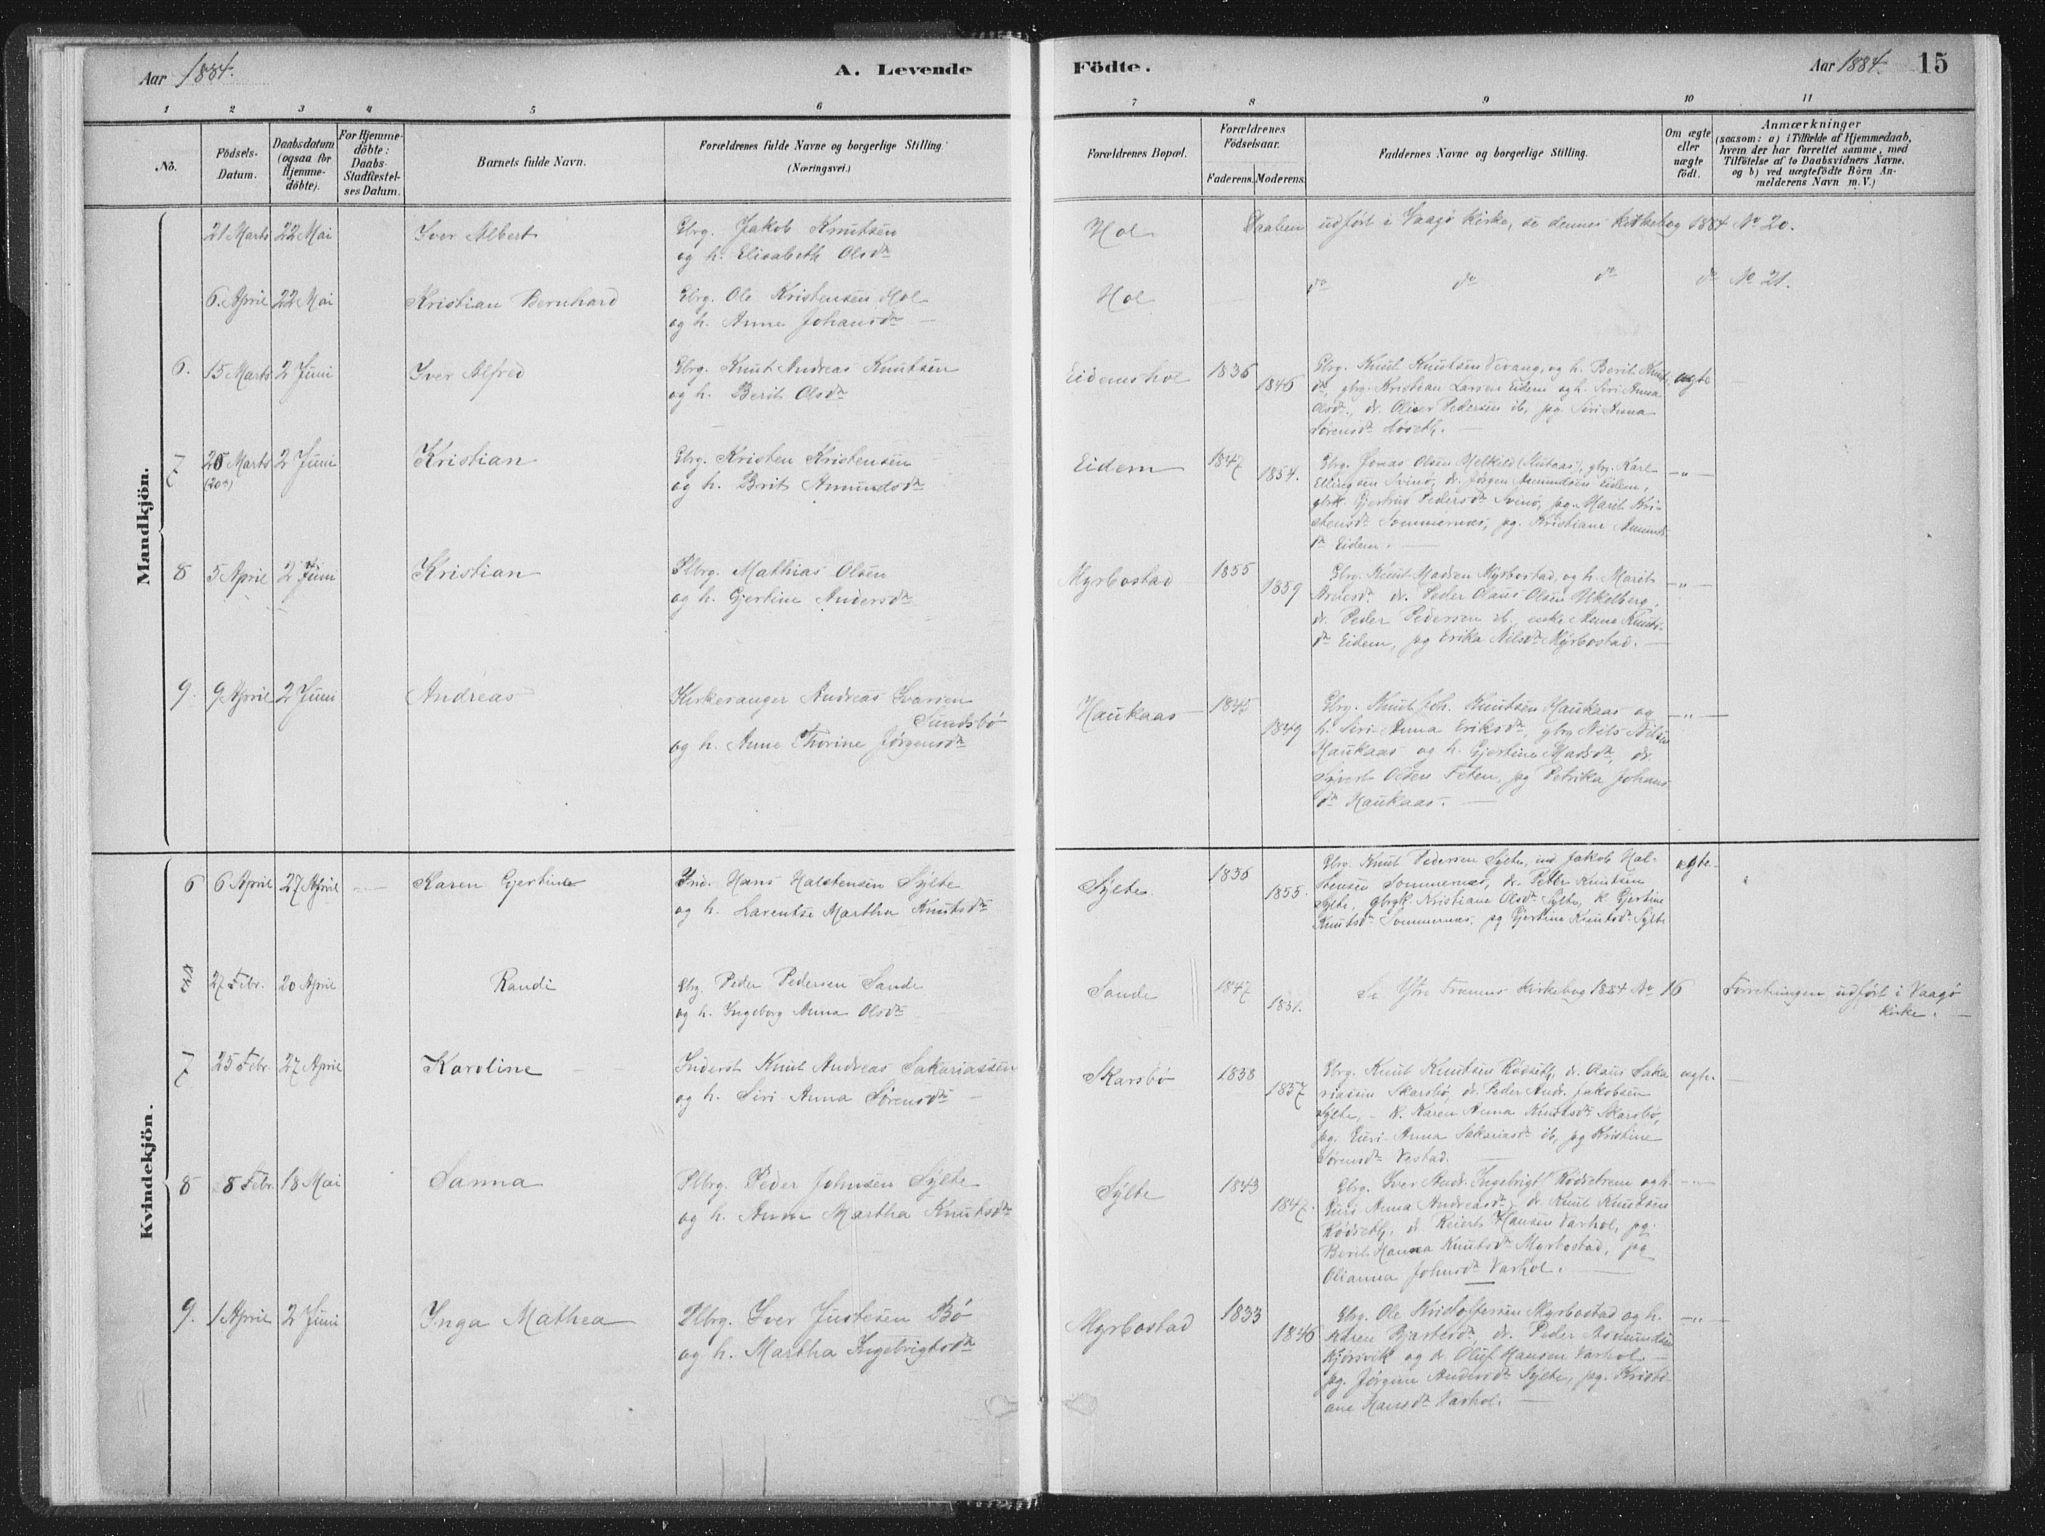 Aar 1884.
A. Levende
Födte.
Aar 1884.
15
1 2 3 4 5 6 7 8 9 10 11
No.
Födsels-
Datum.
Daabsdatum
(ogsaa for
Hjemme-
döbte).
For Hjemme-
döbte:
Daabs-
Stadfæstel-
ses Datum.
Barnets fulde Navn.
Forældrenes fulde Navne og borgerlige Stilling.
(Næringsvei.)
Forældrenes Bopæl.
Forældrenes
Födselsaar.
Faderens. Moderens.
Faddernes Navne og borgerlige Stilling.
Om ægte
eller
uægte
født.
Anmærkninger
(saasom: a) i Tilfælde af Hjemmedaab,
hvem der har forrettet samme, med
Tilföielse af to Daabsvidners Navne.
og b) ved uægtefödte Börn An-
melderens Navn m. V.)
Mandkjön.
21 Marts 22 Mai Iver Albert Gbrg. Jakob Knutsen
og h. Elisabeth Olsdr
Hol Daaben udført i Vaagø Kirke, se dennes Kirkebog 1884 No 20.
6. April 22 Mai Kristian Bernhard Gbrg. Ole Kristensen Hol
og h. Anne Johansdr
Hol do do do do No 21.
6. 15 Marts 2 Juni Iver Alfred Gbrg. Knut Andreas Knutsen
og h. Berit Olsdr
Eidemshol 1836 1846
Gbrg. Knut Knutsen Vevang, og h. Berit Knuts-
dr, gbrg. Kristian Larsen Eidem og h. Siri Anna
Olsdr, dr. Oliver Pedersen ib, pg. Siri Anna
Sørensdr
ægte
7 26 Marts 2 Juni Kristian Gbrg. Kristen Kristensen
(20)
og h. Brit Amundsdr
Eidem 1847 1854.
Gbrg. Jonas Olsen gbrg. Karl
Ellingsen Svinø, dr. Jørgen Amundsen Eidem,
gbrk. Gjertrud Pedersdr Svinø, pg. Marit Kri-
stensdr Sommernes, pg. Kristiane Amunds-
dr Eidem.
—"—
8 5 April 2 Juni Kristian Plbrg. Mathias Olsen
og h. Gjertine Andersdr
Myrbostad 1855 1859
Gbrg. Knut Madsen Myrbostad, og h. Marit
dr. Peder Claus Olsen
dr. Peder Pedersen ib, enke Anne Knuts-
dr Eidem, pg Erika Nilsdr Myrbostad.
—"—
9. 9 April 2 Juni Andreas Kirkesanger Andreas Ivarsen
Sundsbø
og h. Anne Thorine Jørgensdr
Haukaas 1845 1849
Gbrg. Knut Joh. Knutsen Haukaas og
h. Siri Anna Eriksdr, gbrg Nils Nilsen
Haukaas og h. Gjertine Madsdr, dr.
Sivert Olsen Feten, pg Petrika Johans
dr Haukaas.
—"—
Kvindekjön.
6 6 April 27 April Karen Gjertine Ind. Hans Halstensen Sylte
og h. Larentse Martha Knutsdr
Sylte. 1836 1855.
Gbrg. Knut Pedersen Sylte, ind. Jakob Hal-
stensen Sommernes, dr. Peter Knutsen
Sylte, gbrgk. Kristiane Olsdr Sylte, k. Gjertine
Knutsdr Sommernes. pg Gjertine Knutsdr Sylte
ægte.
27 Febr. 20 April Randi Gbrg. Peder Pedersen Sande
og h. Ingeborg Anna Olsdr
Sande 1847 1851.
Se Ytre Frænens Kirkebog 1884 No 16
Forretningen udført i Vaagø
Kirke.
7 25 Febr. 27 April Karoline Inderst Knut Andreas Sakariassen
og h. Siri Anna Sørensdr
Skarsbø 1838 1837
Gbrg. Knut Knutsen Rødseth, dr. Olaus Saka
riassen Skarsbø, dr. Peder And. Jakobsen
Sylte, k. Karen Anna Knutsdr Skarsbø,
pg. Guri Anna Sakariasdr ib, pg Kristine
Sørensdr Vestad.
ægte.
8 8 Febr. 18 Mai Sanna Plbrg. Peder Johnsen Sylte
og h. Anne Martha Knutsdr
Sylte 1843 1847.
Gbrg. Iver Andr. Ingebrigts. og h.
Guri Anna Andreasdr, dr. Knut Knutsen
Rødseth, dr. Reiert Hansen Varhol, pg.
Berit Hanna Knutsdr Myrbostad, pg
Olianna Johnsdr Varhol.
—"—
9. 1 April 2 Juni Inga Mathea Plbrg. Iver Justesen Bø
og h. Martha Ingebrigtsdr
Myrbostad 1833 1846
Gbrg. Ole Kristoffersen Myrbostad og h.
Karen Bjartesdr, dr. Peder Asmundsen
Kjørsvik og dr. Oluf Hansen Varhol
pg. Jørgine Andersdr Sylte, pg. Kristi-
ane Hansdr Varhol.
—"—